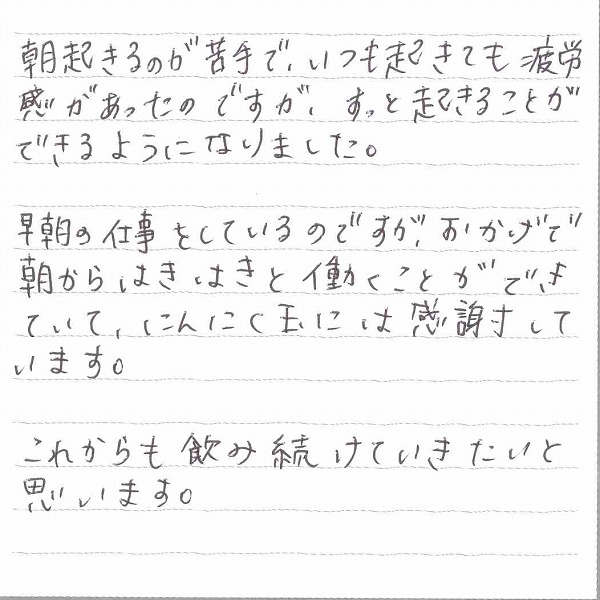 朝起きるのが苦手で、いつも起きても疲労
感があったのですが、すっと起きることが
できるようになりました。
早朝の仕事をしているのですが、おかげで
朝からはきはきと働くことができ
ていて、にんにく玉には感謝して
います。
これからも飲み続けていきたいと
思います。